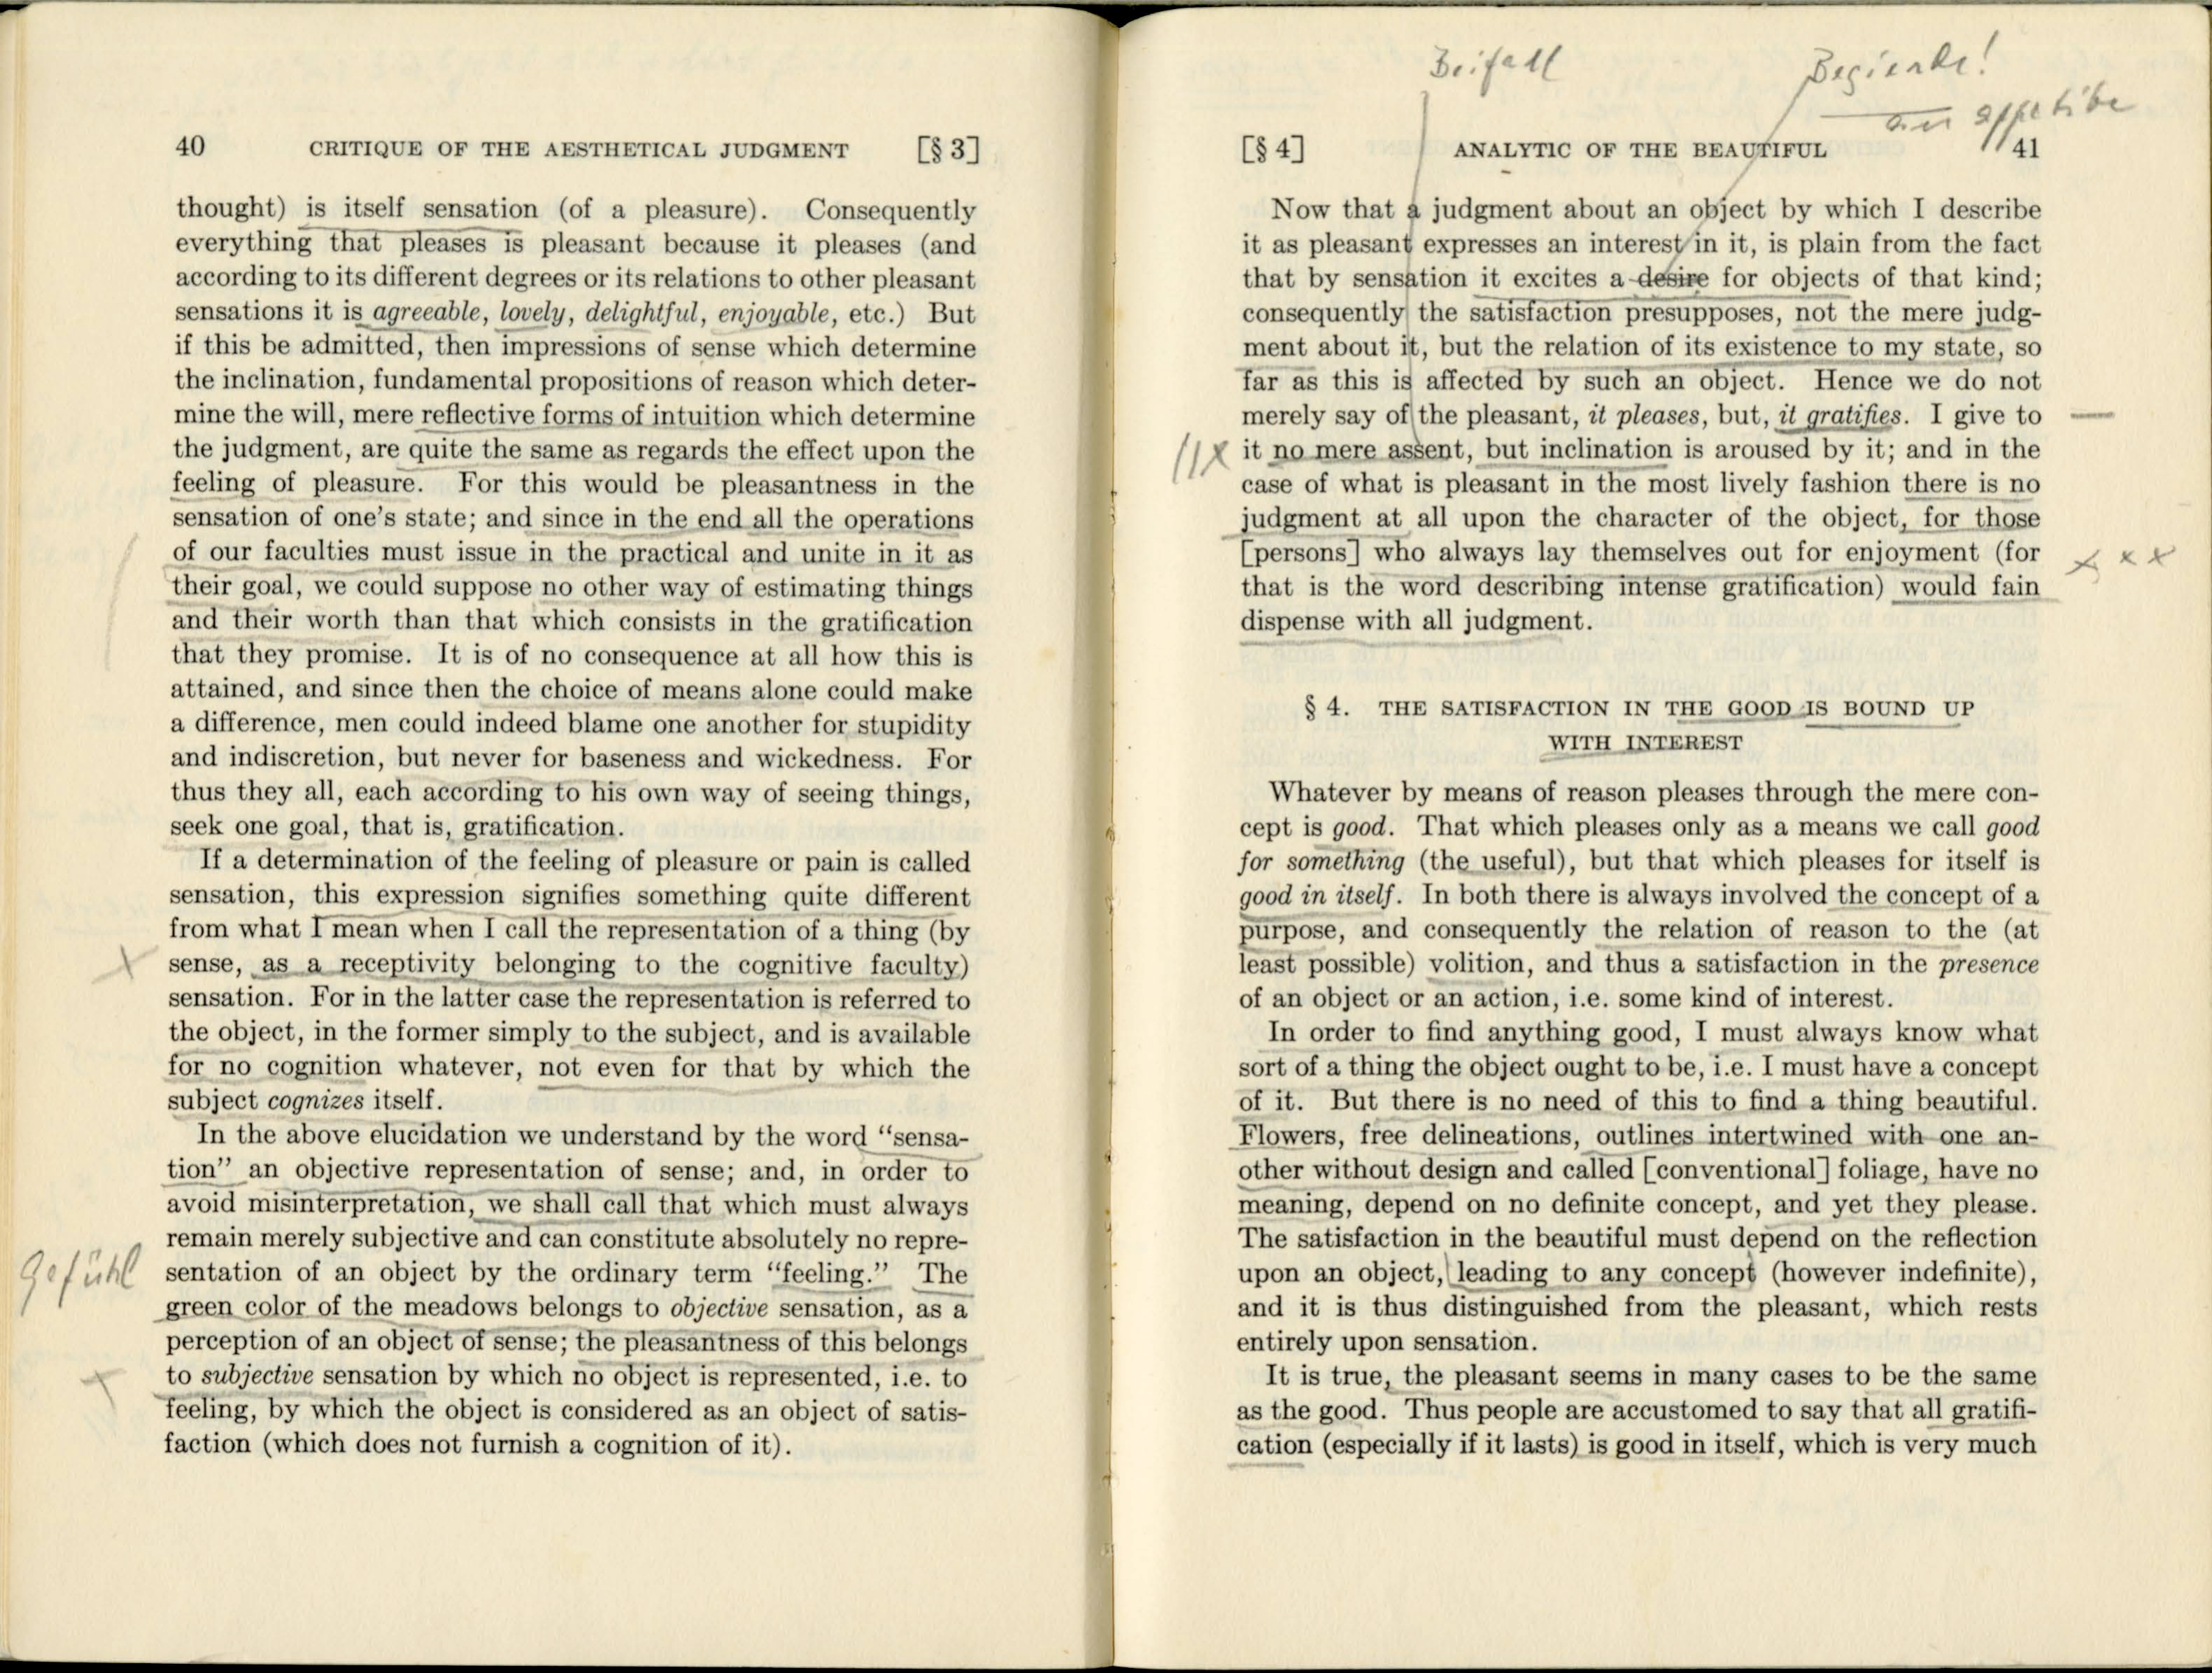 40 CRITIQUE OF THE AESTHETICAL JUDGMENT [§ 3]
thought) is itself sensation (of a pleasure). Consequently
everything that pleases is pleasant because it pleases (and
according to its different degrees or its relations to other pleasant
sensations it is agreeable, lovely, delightful, enjoyable, etc.) But
if this be admitted, then impressions of sense which determine
the inclination, fundamental propositions of reason which deter-
mine the will, mere reflective forms of intuition which determine
the judgment, are quite the same as regards the effect upon the
feeling of pleasure. For this would be pleasantness in the
sensation of one's state; and since in the end all the operations
of our faculties must issue in the practical and unite in it as
their goal, we could suppose no other way of estimating things
and their worth than that which consists in the gratification
that they promise. It is of no consequence at all how this is
attained, and since then the choice of means alone could make
a difference, men could indeed blame one another for stupidity
and indiscretion, but never for baseness and wickedness. For
thus they all, each according to his own way of seeing things,
seek one goal, that is, gratification.
If a determination of the feeling of pleasure or pain is called
sensation, this expression signifies something quite different
from what I mean when I call the representation of a thing (by
sense, as a receptivity belonging to the cognitive faculty)
sensation. For in the latter case the representation is referred to
the object, in the former simply to the subject, and is available
for no cognition whatever, not even for that by which the
subject cognizes itself.
In the above elucidation we understand by the word “sensa-
tion” an objective representation of sense; and, in order to
avoid misinterpretation, we shall call that which must always
remain merely subjective and can constitute absolutely no repre-
Gefühl
sentation of an object by the ordinary term “feeling.” The
green color of the meadows belongs to objective sensation, as a
perception of an object of sense; the pleasantness of this belongs
to subjective sensation by which no object is represented, i.e. to
feeling, by which the object is considered as an object of satis-
faction (which does not furnish a cognition of it).
Beifall
Begierde!
appetibe
[§ 4] ANALYTIC OF THE BEAUTIFUL 41
Now that a judgment about an object by which I describe
it as pleasant expresses an interest in it, is plain from the fact
that by sensation it excites a desire for objects of that kind;
consequently the satisfaction presupposes, not the mere judg-
ment about it, but the relation of its existence to my state, so
far as this is affected by such an object. Hence we do not
merely say of the pleasant, it pleases, but, it gratifies. I give to
it no mere assent, but inclination is aroused by it; and in the
case of what is pleasant in the most lively fashion there is no
judgment at all upon the character of the object, for those
[persons] who always lay themselves out for enjoyment (for
that is the word describing intense gratification) would fain
dispense with all judgment.
§ 4. THE SATISFACTION IN THE GOOD IS BOUND UP
WITH INTEREST
Whatever by means of reason pleases through the mere con-
cept is good. That which pleases only as a means we call good
for something (the useful), but that which pleases for itself is
good in itself. In both there is always involved the concept of a
purpose, and consequently the relation of reason to the (at
least possible) volition, and thus a satisfaction in the presence
of an object or an action, i.e. some kind of interest.
In order to find anything good, I must always know what
sort of a thing the object ought to be, i.e. I must have a concept
of it. But there is no need of this to find a thing beautiful.
Flowers, free delineations, outlines intertwined with one an-
other without design and called [conventional] foliage, have no
meaning, depend on no definite concept, and yet they please.
The satisfaction in the beautiful must depend on the reflection
upon an object, leading to any concept (however indefinite),
and it is thus distinguished from the pleasant, which rests
entirely upon sensation.
It is true, the pleasant seems in many cases to be the same
as the good. Thus people are accustomed to say that all gratifi-
cation (especially if it lasts) is good in itself, which is very much